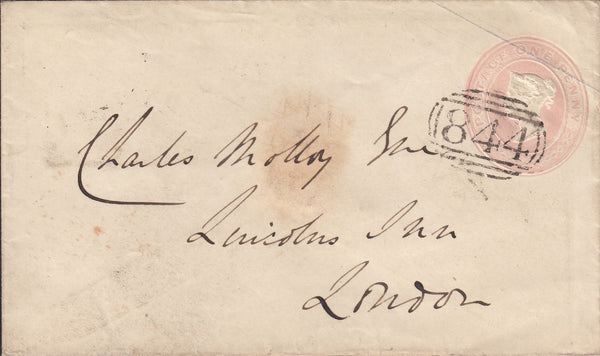 POSTAGE ONE PENNY
844
Charles Molloy Esqre
Lincolns Inn
London